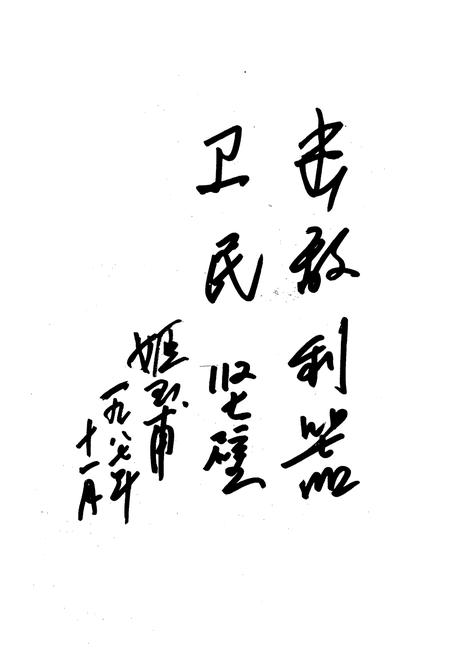 击敌利器
卫民坚壁
姬玉甫
一九八七年
十一月